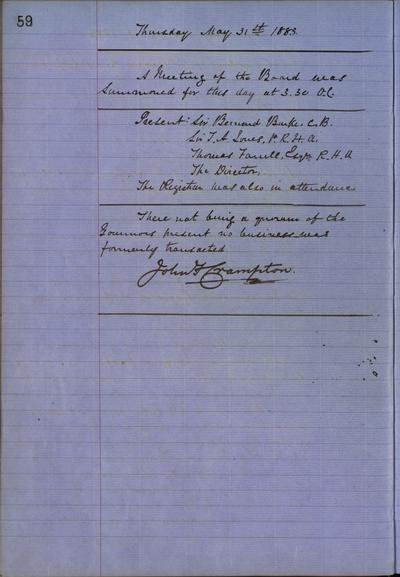 59
Thursday May 31st 1883
A Meeting of the Board was
summoned for this day at 3.30 O.C.
Present: Sir Bernard Burke. C.B.
Sir T. A. Jones, P.R.H.A.
Thomas Farrell, Esqre R.H.A
The Director,
The Registrar was also in attendance
There not being a quorum of the
Governors present no business was
formerly transacted
John F Crampton.